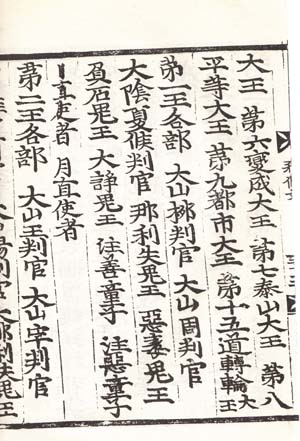 大王 第六變成大王 第七泰山大王 第八
平等大王 第九都市大王 第十五道轉輪大王
第一王各部 大山柳判官 大山周判官
大陰夏候判官 那利失鬼王 惡毒鬼王
負石鬼王 大諍鬼王 注善童子 注惡童子
日直使者 月直使者
第二王各部 大山王判官 大山宰判官